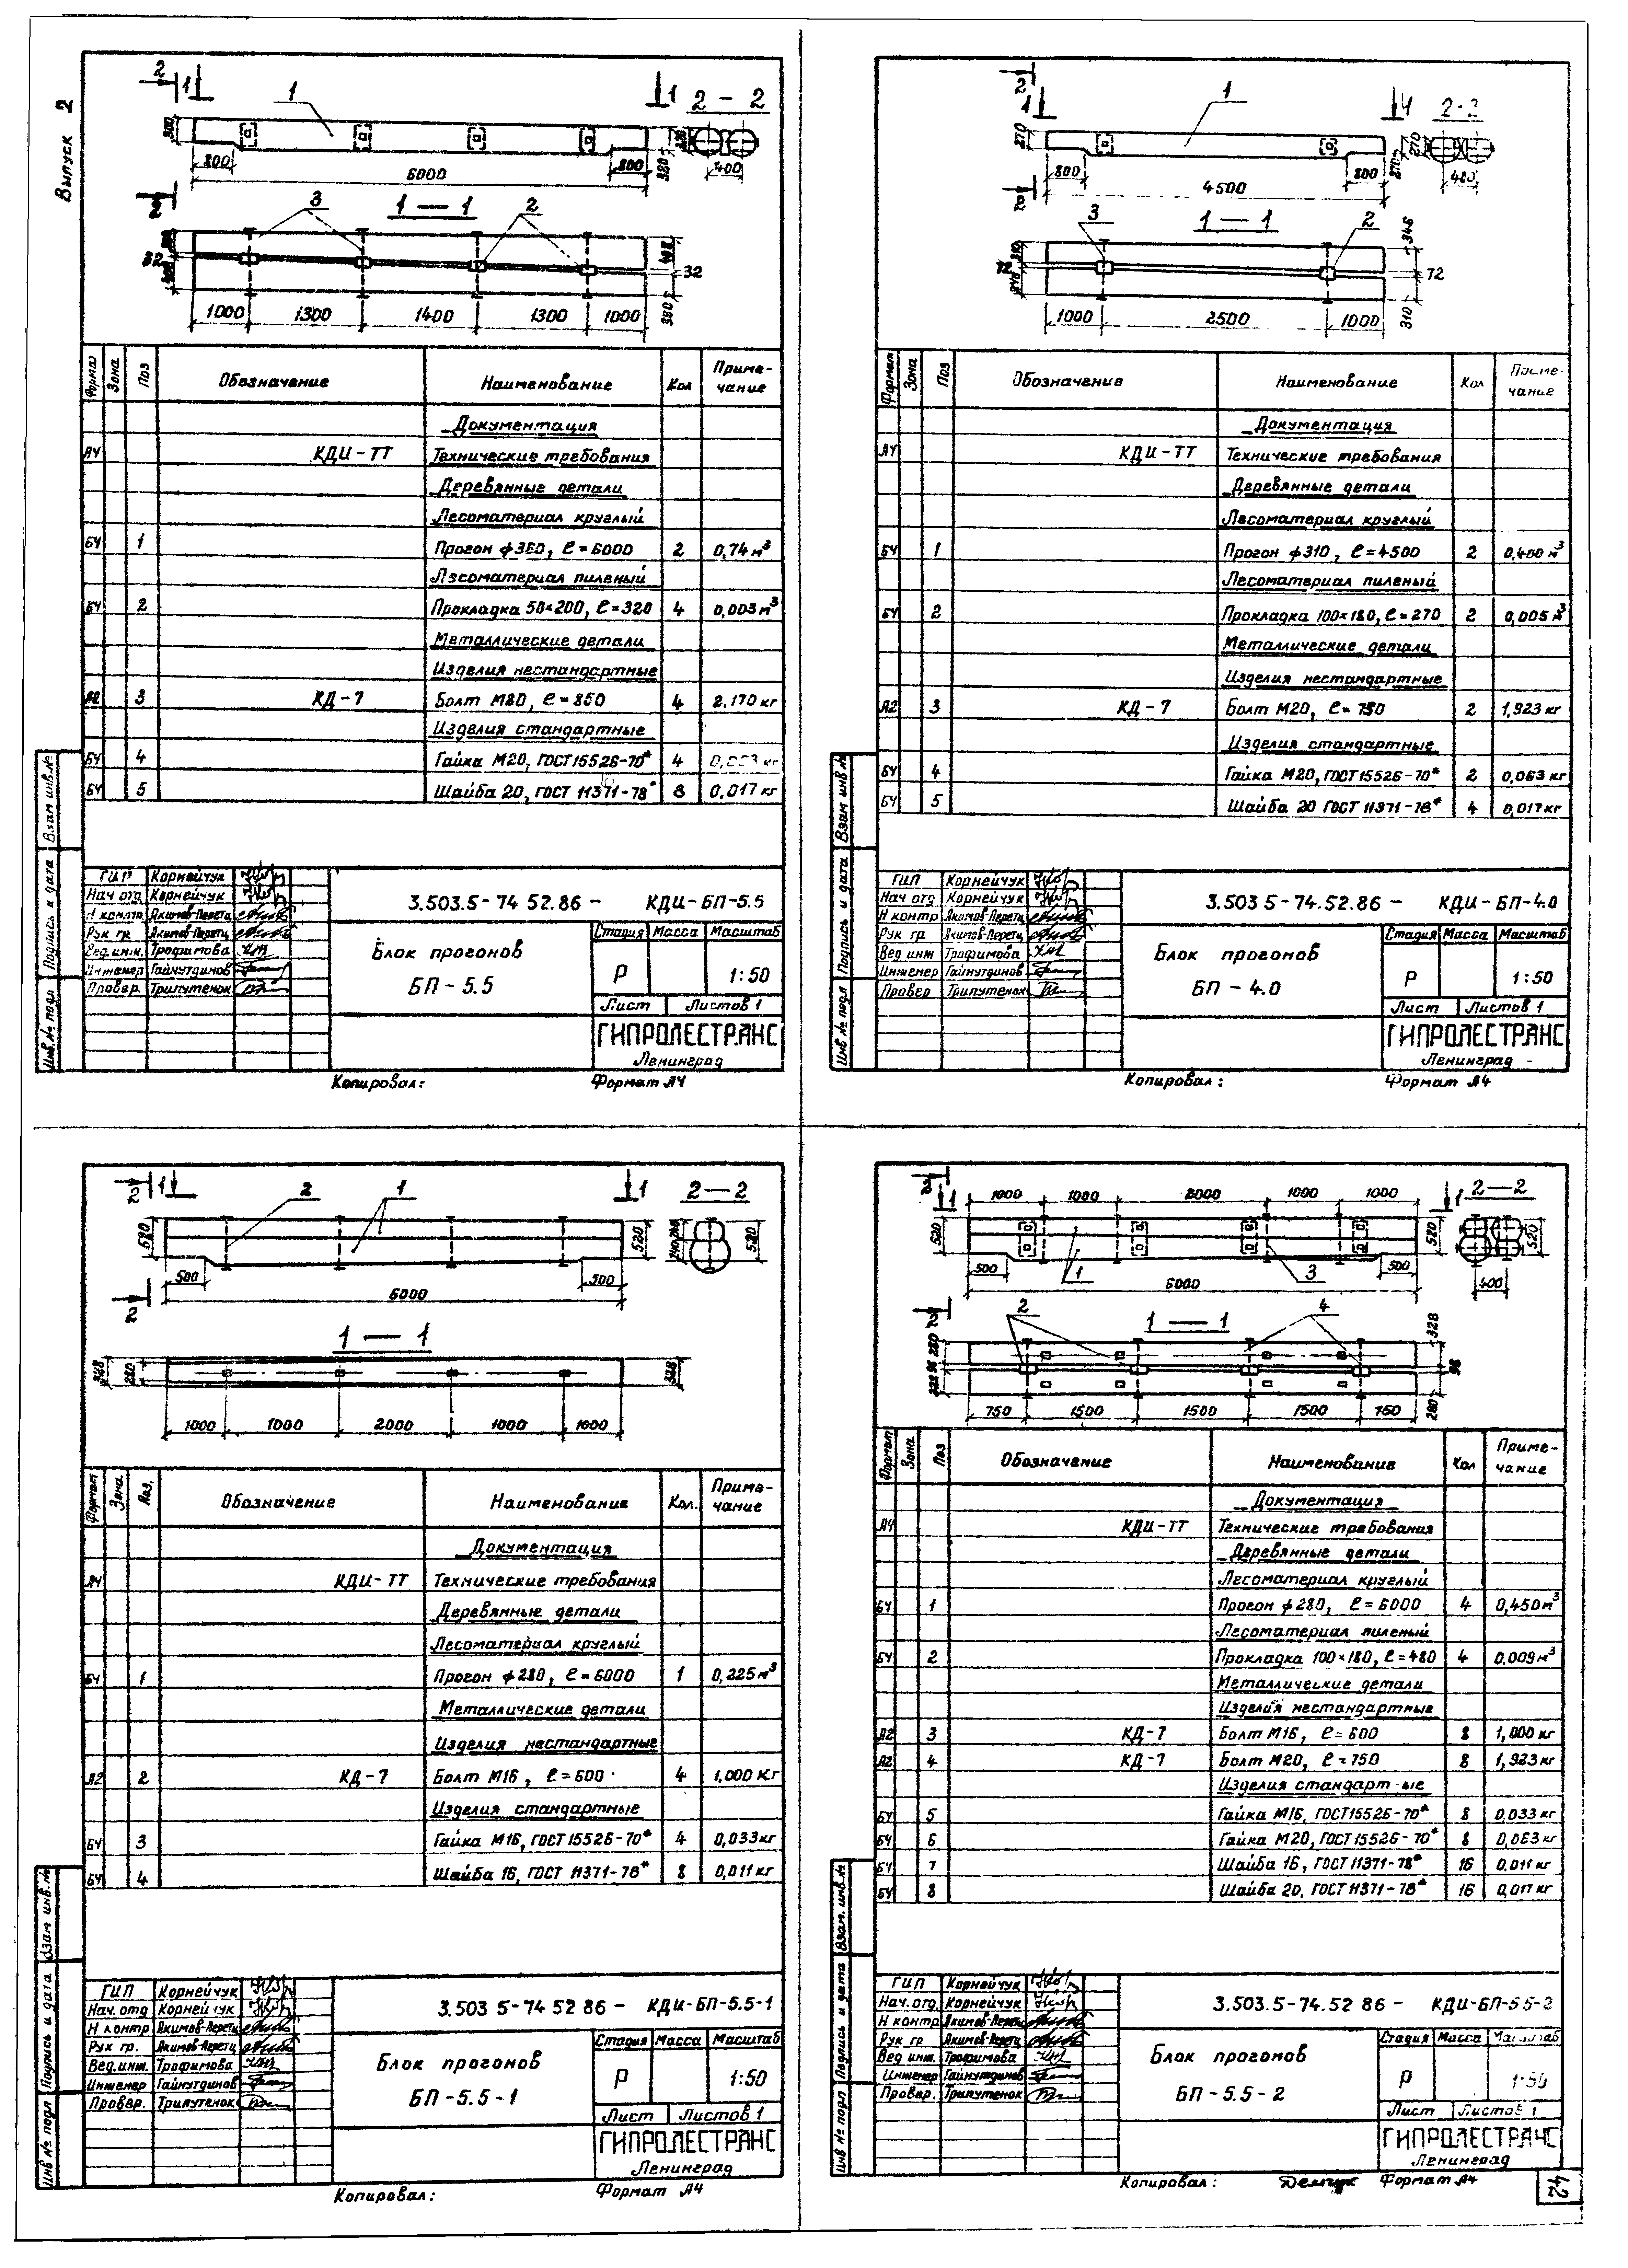 Выпуск 2
2 1 1 2 – 2
1
300 200 200 6000 320 400
2 3 1 — 1 2
32 408 32 360
1000 1300 1400 1300 1000
Формат Зона Поз Обозначение Наименование Кол Приме-
чание
Документация
А4 КДИ-ТТ Технические требования
Деревянные детали
Лесоматериал круглый
БЧ 1 Прогон ф360, ℓ=6000 2 0,74 м³
Лесоматериал пиленый
БЧ 2 Прокладка 50×200, ℓ=320 4 0,003 м³
Металлические детали
Изделия нестандартные
А2 3 КД-7 Болт М20, ℓ=850 4 2,170 кг
Изделия стандартные
БЧ 4 Гайка М20, ГОСТ 15526-70* 4 0,063 кг
БЧ 5 Шайба 20, ГОСТ 11371-78* 8 0,017 кг
Взам инв.№
Подпись и дата
Инв № подл
ГИП Корнейчук
Нач отд Корнейчук
Н контр Акимов-Перетц
Рук гр. Акимов-Перетц
Вед. инж. Трофимова
Инженер Гайнутдинов
Провер. Трипутенок
3.503.5-74 52.86 – КДИ-БП-5.5
Блок прогонов
БП-5.5
Стадия Масса Масштаб
Р 1:50
Лист Листов 1
ГИПРОЛЕСТРАНС
Ленинград
Копировал: Формат А4
2 1 2-2
1
270 200 200 4500 270 270 400
3 1 — 1 2
346 72 72 310 310
1000 2500 1000
Формат Зона Поз Обозначение Наименование Кол Приме-
чание
Документация
А4 КДИ-ТТ Технические требования
Деревянные детали
Лесоматериал круглый
БЧ 1 Прогон ф310, ℓ=4500 2 0,400 м³
Лесоматериал пиленый
БЧ 2 Прокладка 100×180, ℓ=270 2 0,005 м³
Металлические детали
Изделия нестандартные
А2 3 КД-7 Болт М20, ℓ=750 2 1,923 кг
Изделия стандартные
БЧ 4 Гайка М20, ГОСТ 15526-70* 2 0,063 кг
БЧ 5 Шайба 20 ГОСТ 11371-78* 4 0,017 кг
Взам инв №
Подпись и дата
Инв № подл
ГИП Корнейчук
Нач отд Корнейчук
Н контр Акимов-Перетц
Рук гр Акимов-Перетц
Вед инж Трофимова
Инженер Гайнутдинов
Провер Трипутенок
3.503.5-74.52.86 – КДИ-БП-4.0
Блок прогонов
БП-4.0
Стадия Масса Масштаб
Р 1:50
Лист Листов 1
ГИПРОЛЕСТРАНС
Ленинград
Копировал: Формат А4
2 1 2 1 1 2—2
520 500 500 6000 520 240 520
2
1 — 1
328 280 328
1000 1000 2000 1000 1000
Формат Зона Поз. Обозначение Наименование Кол. Приме-
чание
Документация
А4 КДИ-ТТ Технические требования
Деревянные детали
Лесоматериал круглый
БЧ 1 Прогон ф280, ℓ=6000 1 0,225 м³
Металлические детали
Изделия нестандартные
А2 2 КД-7 Болт М16, ℓ=600 4 1,000 кг
Изделия стандартные
БЧ 3 Гайка М16, ГОСТ 15526-70* 4 0,033 кг
БЧ 4 Шайба 16, ГОСТ 11371-78* 8 0,011 кг
Взам инв.№
Подпись и дата
Инв № подл
ГИП Корнейчук
Нач. отд Корнейчук
Н контр Акимов-Перетц
Рук гр. Акимов-Перетц
Вед. инж. Трофимова
Инженер Гайнутдинов
Провер. Трипутенок
3.503 5-74 52 86 – КДИ-БП-5.5-1
Блок прогонов
БП-5.5-1
Стадия Масса Масштаб
Р 1:50
Лист Листов 1
ГИПРОЛЕСТРАНС
Ленинград
Копировал: Формат А4
2 1 1000 1000 2000 1000 1000 1 2—2
520 500 1 3 500 6000 520 520 400
2 1 — 1 4
280 96 328 328 96 280
750 1500 1500 1500 750
Формат Зона Поз Обозначение Наименование Кол Приме-
чание
Документация
А4 КДИ-ТТ Технические требования
Деревянные детали
Лесоматериал круглый
БЧ 1 Прогон ф280, ℓ=6000 4 0,450 м³
Лесоматериал пиленый
БЧ 2 Прокладка 100×180, ℓ=480 4 0,009 м³
Металлические детали
Изделия нестандартные
А2 3 КД-7 Болт М16, ℓ=600 8 1,000 кг
А2 4 КД-7 Болт М20, ℓ=750 8 1,923 кг
Изделия стандарт ые
БЧ 5 Гайка М16, ГОСТ 15526-70* 8 0,033 кг
БЧ 6 Гайка М20, ГОСТ 15526-70* 8 0,063 кг
БЧ 7 Шайба 16, ГОСТ 11371-78* 16 0,011 кг
БЧ 8 Шайба 20, ГОСТ 11371-78* 16 0,017 кг
Взам. инв.№
Подпись и дата
Инв № подл
ГИП Корнейчук
Нач. отд. Корнейчук
Н контр Акимов-Перетц
Рук гр Акимов-Перетц
Вед инж. Трофимова
Инженер Гайнутдинов
Провер. Трипутенок
3.503.5-74.52 86 – КДИ-БП-5 5-2
Блок прогонов
БП-5.5-2
Стадия Масса Масштаб
Р 1:50
Лист Листов 1
ГИПРОЛЕСТРАНС
Ленинград
Копировал: Формат А4
42